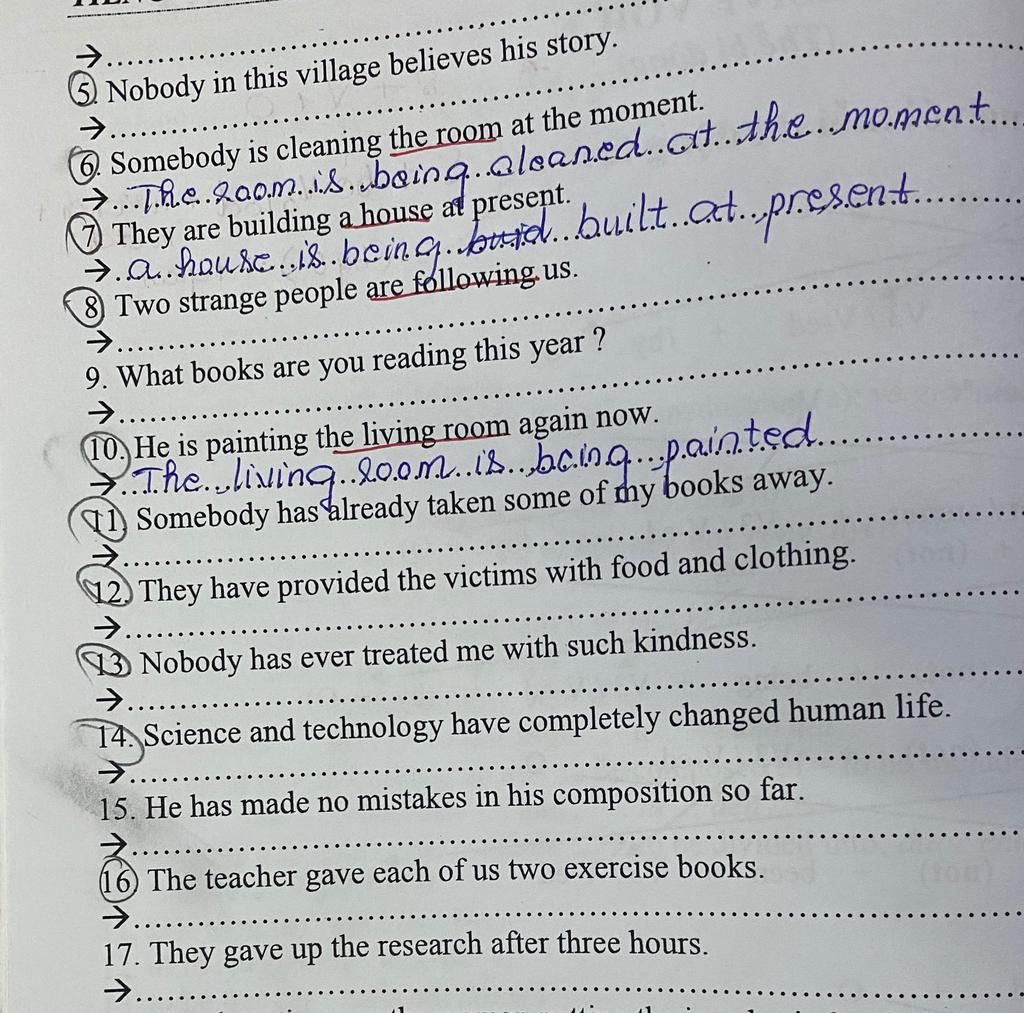 →
5. Nobody in this village believes his story.
→
6. Somebody is cleaning the room at the moment.
→ The room is being cleaned at the moment
7. They are building a house at present.
→ a house is being built at present
8. Two strange people are following us.
→
9. What books are you reading this year ?
→
10. He is painting the living room again now.
→ The living room is being painted
11. Somebody has already taken some of my books away.
→
12. They have provided the victims with food and clothing.
→
13. Nobody has ever treated me with such kindness.
→
14. Science and technology have completely changed human life.
→
15. He has made no mistakes in his composition so far.
→
16. The teacher gave each of us two exercise books.
→
17. They gave up the research after three hours.
→